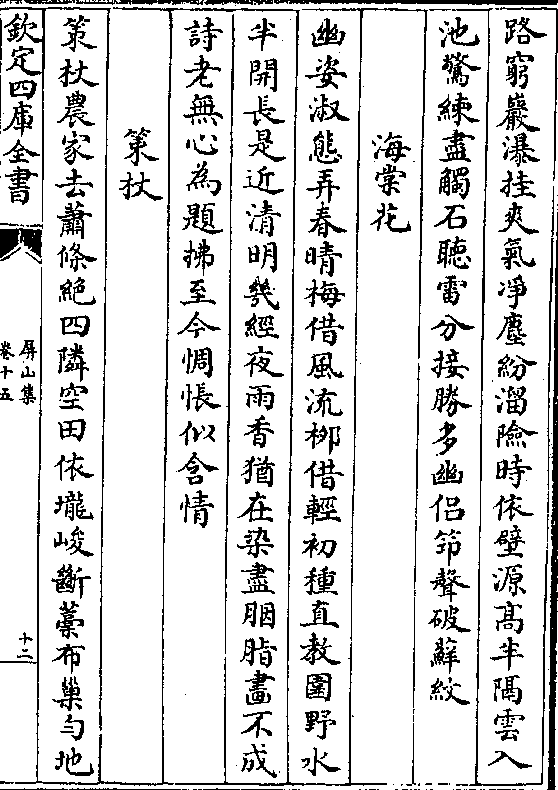 路窮巖瀑挂爽氣凈塵紛溜險時依壁源髙半隔雲入
池驚練盡觸石聽雷分接勝多幽侣笻聲破蘚紋
海棠花
幽姿淑態弄春晴梅借風流栁借輕初種直教圍野水
半開長是近清明幾經夜雨香猶在染盡胭脂畵不成
詩老無心為題拂至今惆悵似含情
策杖
策杖農家去蕭條絶四隣空田依壠峻斷藁布巢勻地
欽定四庫全書
屏山集
卷十五
十二